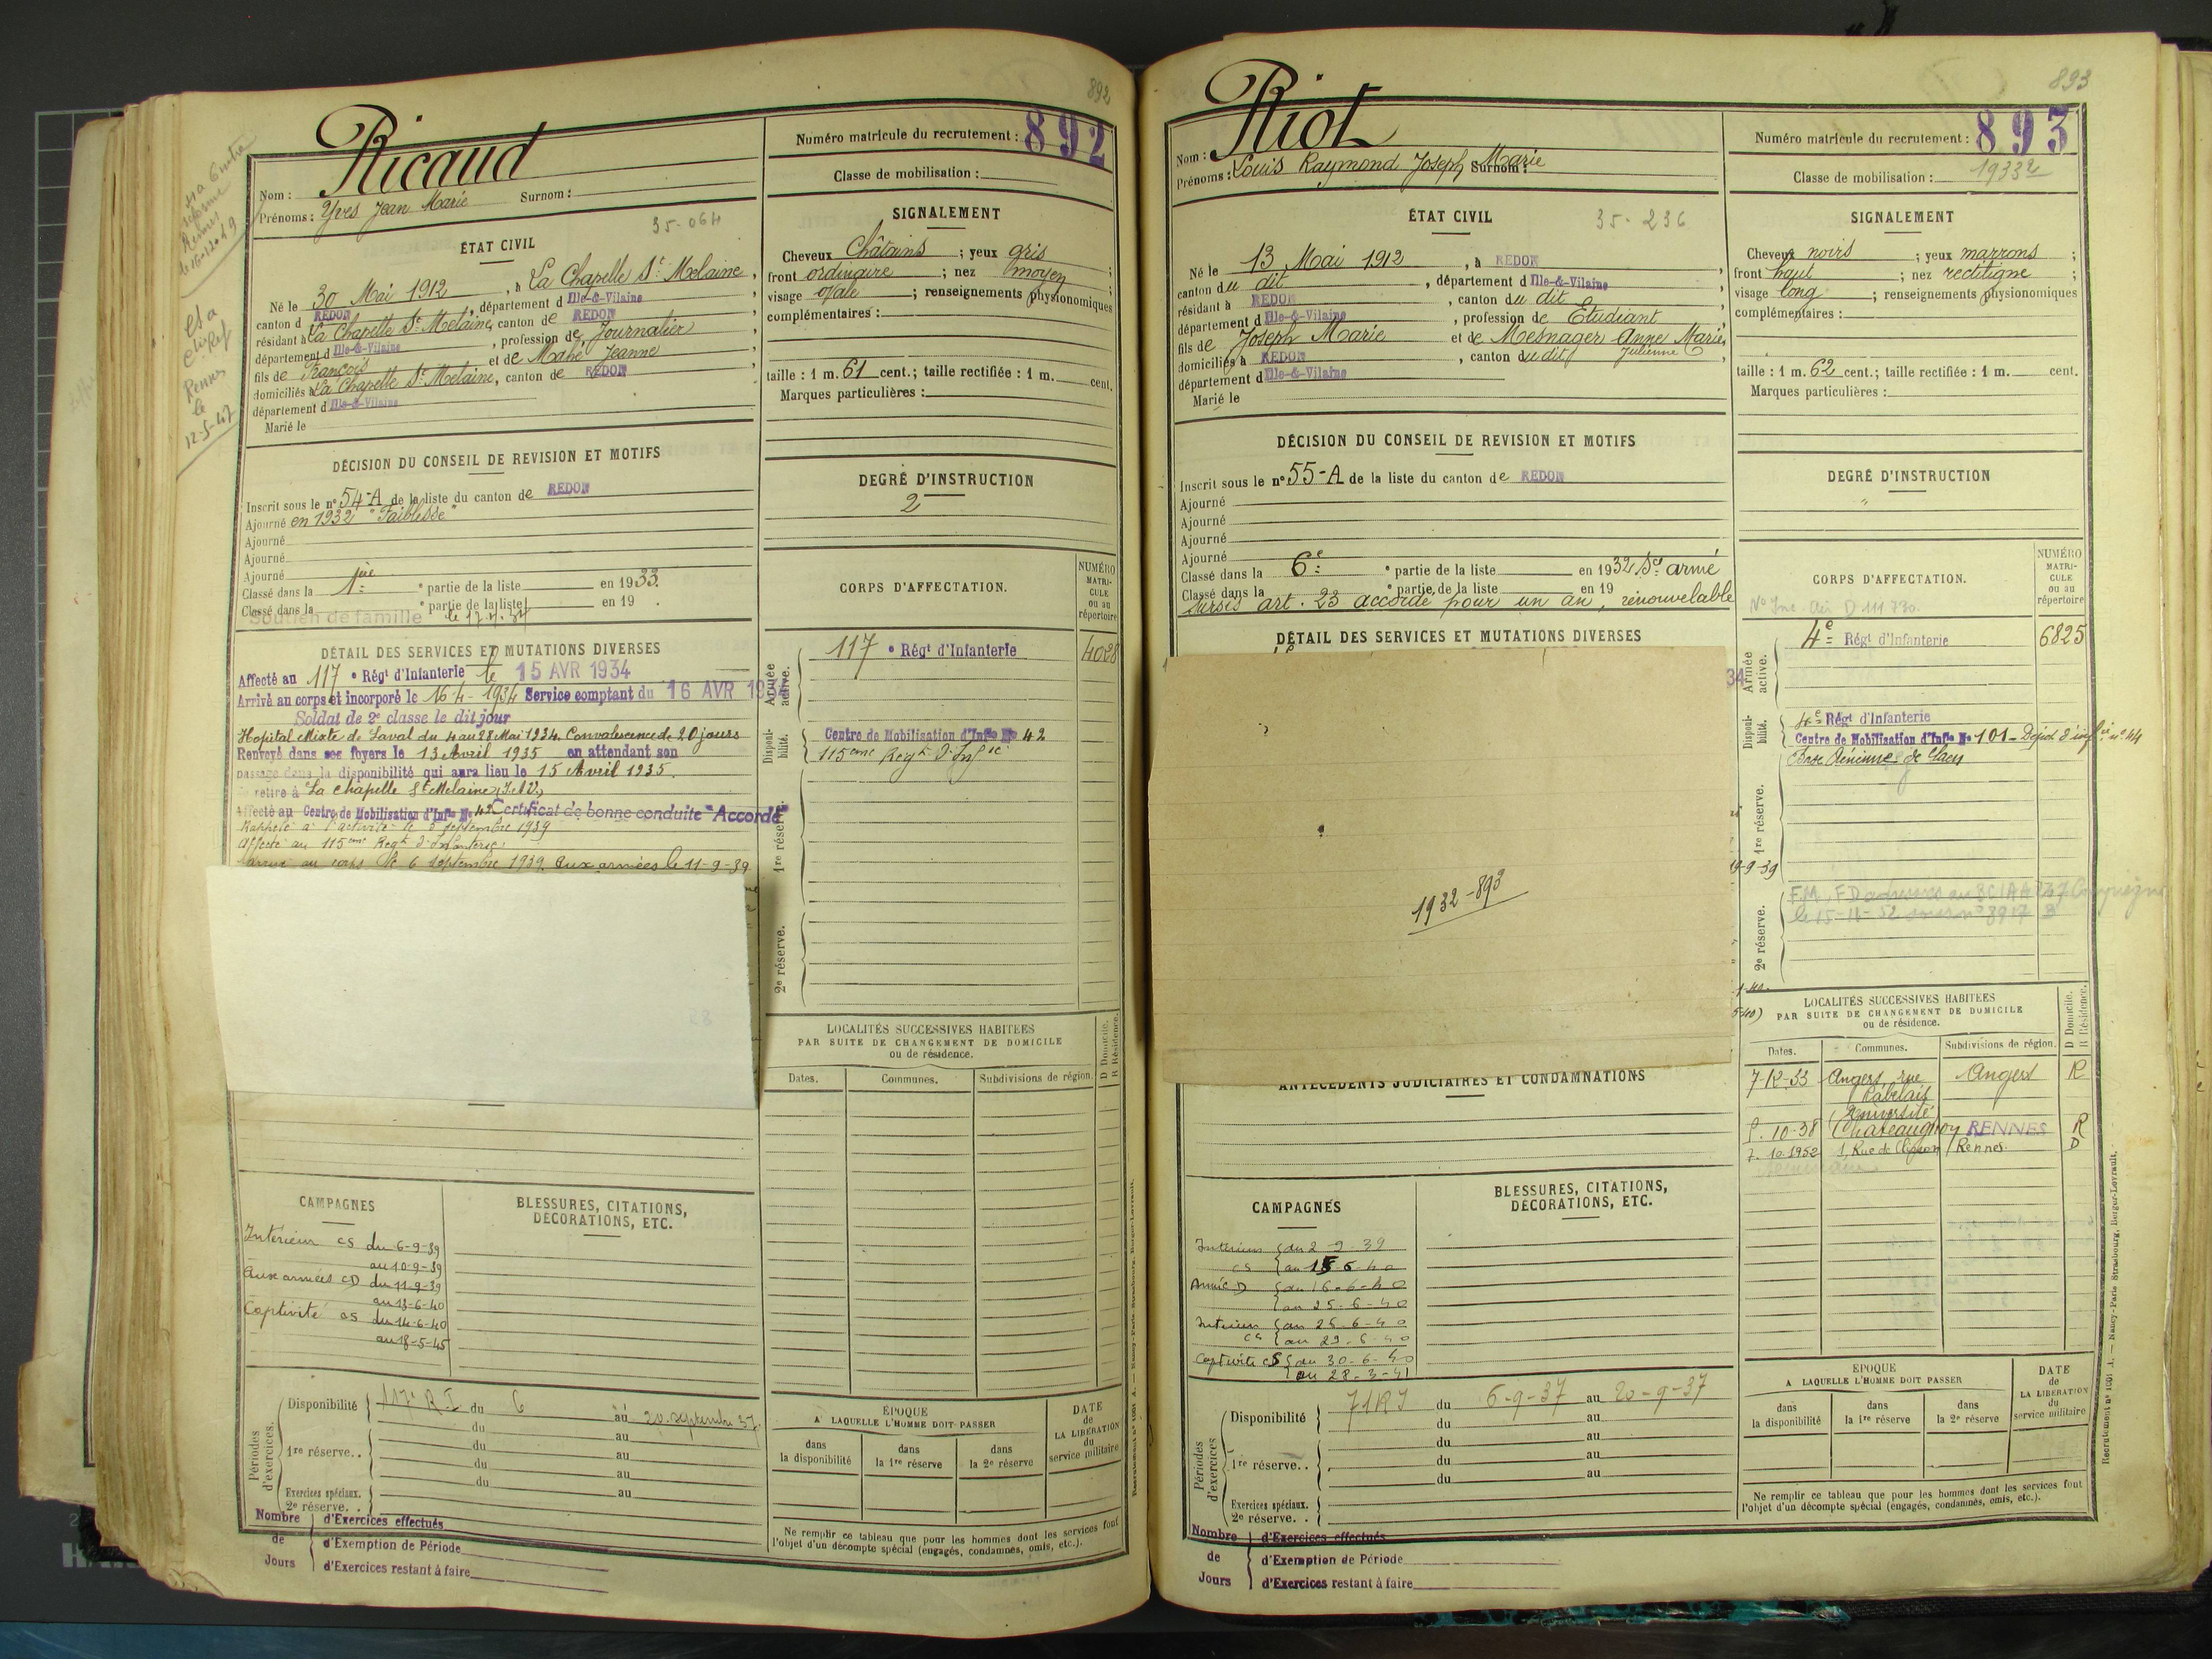 892
Ricaud
Nom :
Prénoms : Yves Jean Marie Surnom :
Numéro matricule du recrutement : 892
Classe de mobilisation :
35-064
ÉTAT CIVIL
Né le 30 Mai 1912, à La Chapelle St Melaine,
canton d REDON, département d Ille-&-Vilaine,
résidant à La Chapelle St Melaine, canton de REDON
département d Ille-&-Vilaine, profession de Journalier
fils de François et de Mahé Jeanne
domiciliés à La Chapelle St Melaine, canton de REDON
département d Ille-&-Vilaine
Marié le
SIGNALEMENT
Cheveux Châtains ; yeux gris ;
front ordinaire ; nez moyen ;
visage Ovale ; renseignements physionomiques
complémentaires :
taille : 1 m. 61 cent.; taille rectifiée : 1 m. cent.
Marques particulières :
Rennes
le
12-5-47
DÉCISION DU CONSEIL DE REVISION ET MOTIFS
Inscrit sous le n° 54-A de la liste du canton de REDON
Ajourné en 1932 "Faiblesse"
Ajourné
Ajourné
Ajourné
Classé dans la 1ère partie de la liste en 1933.
Classé dans la partie de la liste en 19 .
Soutien de famille
DEGRÉ D'INSTRUCTION
2
DÉTAIL DES SERVICES ET MUTATIONS DIVERSES
Affecté au 117 e Régt d'Infanterie le 15 AVR 1934
Arrivé au corps et incorporé le 16-4-1934 Service comptant du 16 AVR 19
Soldat de 2e classe le dit jour
Hopital Mixte de Laval du 4 au 28 Mai 1934. Convalescence de 20 jours
Renvoyé dans ses foyers le 13 Avril 1935 en attendant son
passage dans la disponibilité qui aura lieu le 15 Avril 1935.
retire à La Chapelle St Melaine (I.&V.)
Affecté au Centre de Mobilisation d'Infie No 42 Certificat de bonne conduite "Accordé"
Rappelé à l'activité le 3 septembre 1939
Affecté au 115eme Regt d'Infanterie
arrivé au corps le 6 septembre 1939. Aux armées le 11-9-39
CORPS D'AFFECTATION.
NUMÉRO MATRI-CULE ou au répertoire
Armée active.
117 e Régt d'Infanterie 4028
Disponi-bilité.
Centre de Mobilisation d'Infie No 42
115eme Regt d'Infie
1re réserve.
2e réserve.
LOCALITÉS SUCCESSIVES HABITÉES
PAR SUITE DE CHANGEMENT DE DOMICILE
ou de résidence.
D Domicile.
R Résidence.
Dates. Communes. Subdivisions de région.
CAMPAGNES
Intérieur CS du 6-9-39
au 10-9-39
Aux armées CD du 11-9-39
au 13-6-40
Captivité CS du 14-6-40
au 18-5-45
BLESSURES, CITATIONS,
DÉCORATIONS, ETC.
Périodes d'exercices.
Disponibilité 117e R.I du 6 au 20 septembre 37.
du au
1re réserve.. du au
du au
du au
Exercices spéciaux.
2e réserve. .
Nombre de Jours
d'Exercices effectués
d'Exemption de Période
d'Exercices restant à faire
ÉPOQUE
A LAQUELLE L'HOMME DOIT PASSER
dans la disponibilité
dans la 1re réserve
dans la 2e réserve
DATE de LA LIBÉRATION du service militaire
Ne remplir ce tableau que pour les hommes dont les services font
l'objet d'un décompte spécial (engagés, condamnés, omis, etc.).
893
Riot
Nom :
Prénoms : Louis Raymond Joseph Marie Surnom :
Numéro matricule du recrutement : 893
Classe de mobilisation :
35-236
ÉTAT CIVIL
Né le 13 Mai 1912, à REDON,
canton du dit, département d Ille-&-Vilaine
résidant à REDON, canton du dit
département d Ille-&-Vilaine, profession de Etudiant
fils de Joseph Marie et de Mesnager Anne Marie
Julienne
domiciliés à REDON, canton du dit,
département d Ille-&-Vilaine
Marié le
SIGNALEMENT
Cheveux noirs ; yeux marrons ;
front haut ; nez rectiligne ;
visage long ; renseignements physionomiques
complémentaires :
taille : 1 m. 62 cent.; taille rectifiée : 1 m. cent.
Marques particulières :
DÉCISION DU CONSEIL DE REVISION ET MOTIFS
Inscrit sous le n° 55-A de la liste du canton de REDON
Ajourné
Ajourné
Ajourné
Ajourné
Classé dans la 6e partie de la liste en 1932 Sce armé
Classé dans la partie de la liste en 19
sursis art. 23 accordé pour un an, renouvelable
DEGRÉ D'INSTRUCTION
"
DÉTAIL DES SERVICES ET MUTATIONS DIVERSES
1932-893
CORPS D'AFFECTATION.
NUMÉRO MATRI-CULE ou au répertoire
Armée active.
4e Régt d'Infanterie 6825
Disponi-bilité.
4e Régt d'Infanterie
Centre de Mobilisation d'Infie No 101 - Dépôt d'infie n° 44
Base Aérienne de Caen
1re réserve.
2e réserve.
LOCALITÉS SUCCESSIVES HABITÉES
PAR SUITE DE CHANGEMENT DE DOMICILE
ou de résidence.
D Domicile.
R Résidence.
Dates. Communes. Subdivisions de région.
7-12-33 Angers, rue Rabelais Angers R
Université
10-38 Chateaugiron RENNES R
7.10.1952 Rennes D
ANTÉCÉDENTS JUDICIAIRES ET CONDAMNATIONS
CAMPAGNES
Intérieur du 2-9-39
CS au 15-6-40
Armée D du 16-6-40
au 25-6-40
Intérieur du 26-6-40
CS au 29-6-40
Captivité CS du 30-6-40
au 28-3-41
BLESSURES, CITATIONS,
DÉCORATIONS, ETC.
Périodes d'exercices
Disponibilité 71 RI du 6-9-37 au 20-9-37
du au
1re réserve.. du au
du au
du au
Exercices spéciaux.
2e réserve. .
Nombre de Jours
d'Exercices effectués
d'Exemption de Période
d'Exercices restant à faire
ÉPOQUE
A LAQUELLE L'HOMME DOIT PASSER
dans la disponibilité
dans la 1re réserve
dans la 2e réserve
DATE de LA LIBÉRATION du service militaire
Ne remplir ce tableau que pour les hommes dont les services font
l'objet d'un décompte spécial (engagés, condamnés, omis, etc.).
Recrutement n° 1001 A. — Nancy-Paris-Strasbourg, Berger-Levrault.